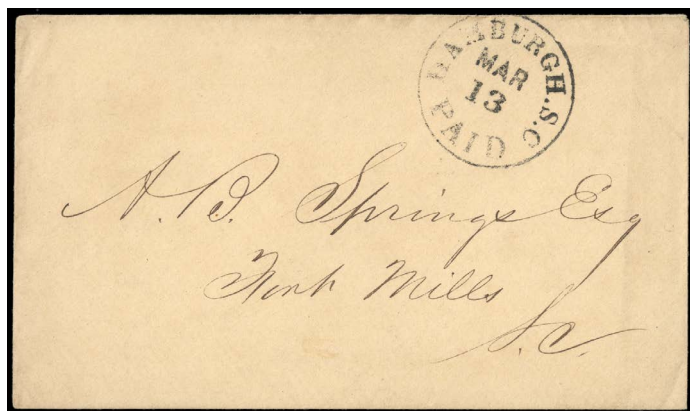 HAMBURGH. S.C
MAR
13
PAID
A. B. Springs Esq
Fort Mills
S.C.